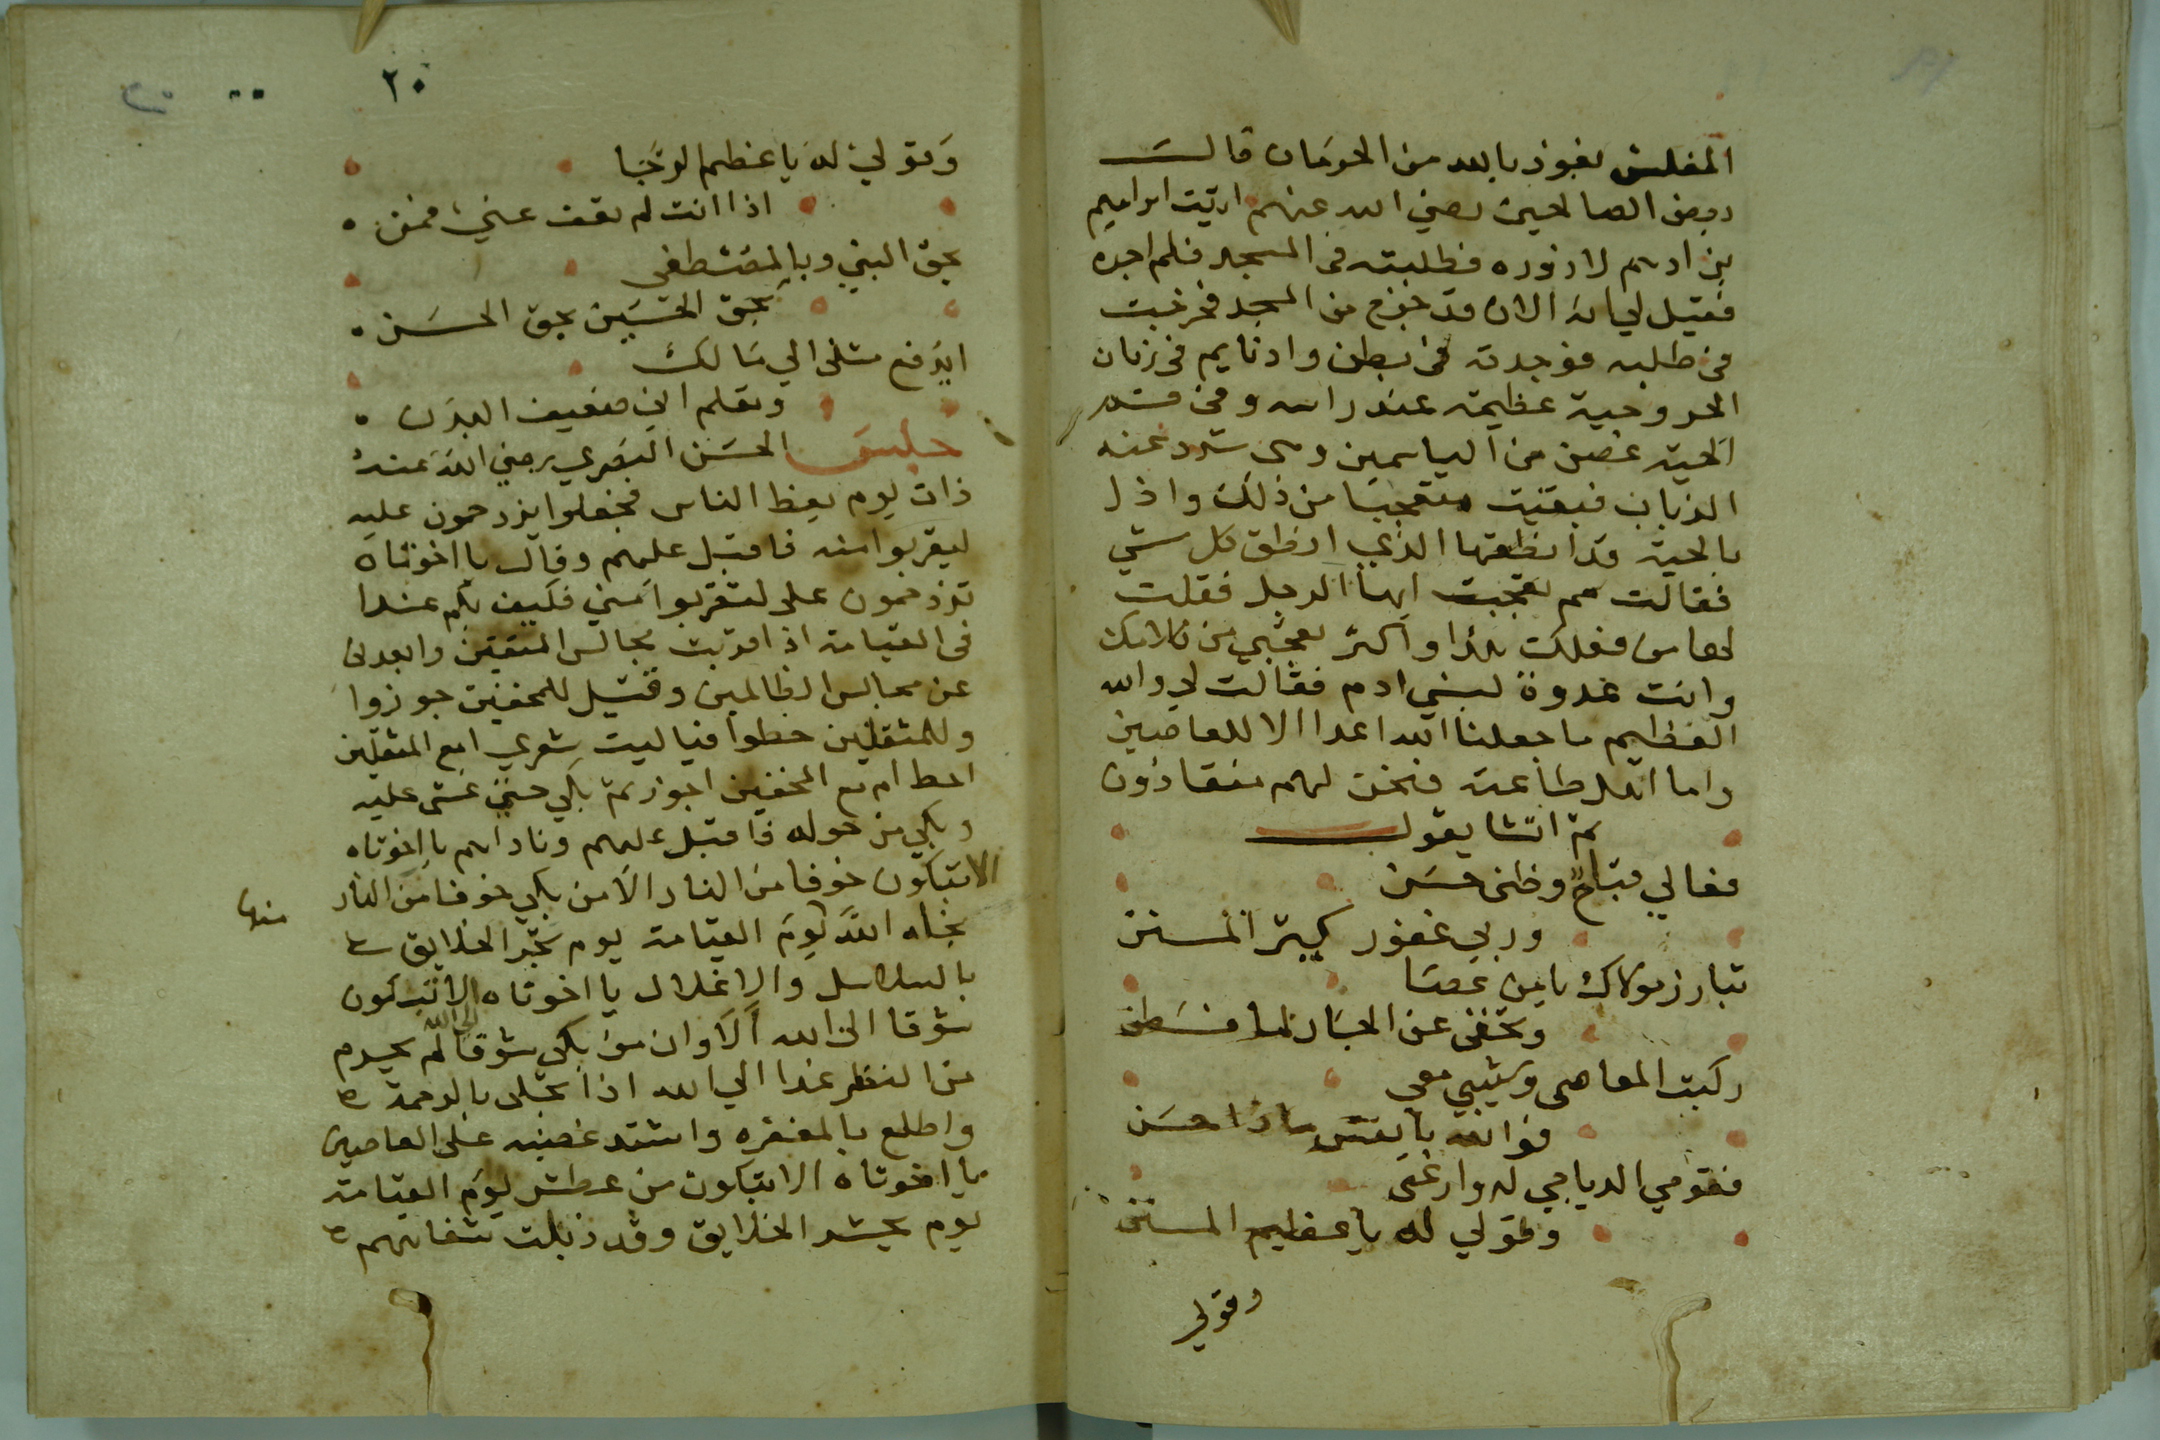 المفلس نعوذ بالله من الحرمان قالت
بعض الصالحين رضي الله عنهم اتيت ابراهيم
بن ادهم لازوره فطلبته في المسجد فلم اجده
فقيل لي انه الان قد خرج من المسجد فخرجت
في طلبه فوجدته في بطن واد نايم في زمان
الحر وحية عظيمة عند راسه وفي فم
الحية غصن من الياسمين وهي تشرد عنه
الذباب فبقيت متعجبا من ذلك واذا
بالحية قد انطقها الذي انطق كل شي
فقالت مم تعجبت ايها الرجل فقلت
لها من فعلك هذا واكثر تعجبي من كلامك
وانت عدوة لبني ادم فقالت لي والله
العظيم ما جعلنا الله اعدا الا للعاصين
واما اهل طاعته فنحن لهم منقادون
ثم انشا يقول
فعالي قباح وظني حسن
وربي غفور كثير المنن
تبارز مولاك يا من عصا
وتخفى عن الجار لما فطن
ركبت المعاصي وشيبي معي
فوالله يا نفس ماذا حسن
فقومي الدياجي له وارغبي
وقولي له يا عظيم المنن
وقولي
٢٠
وقولي له يا عظيم الرجا
اذا انت لم تعف عني فمن
بحق النبي وبالمصطفى
بحق الحسين بحق الحسن
ايدفع مثلي الي مالك
وتعلم اني ضعيف البدن
جلس الحسن البصري رضي الله عنه
ذات يوم يعظ الناس فجعلوا يزدحمون عليه
ليقربوا منه فاقبل عليهم وقال يا اخوتاه
تزدحمون على لتقربوا مني فكيف بكم غدا
في القيامة اذا قربت مجالس المتقين وابعدت
عن مجالس الظالمين وقيل للمخفين جوزوا
وللمثقلين حطوا فيا ليت شعري امع المثقلين
احط ام مع المخفين اجوز ثم بكي حتى غشي عليه
وبكي من حوله فاقبل عليهم وناداهم يا اخوتاه
الا تبكون خوفا من النار الا من بكي خوفا من النار
نجاه الله يوم القيامة يوم تجر الخلايق
منها
بالسلاسل والاغلال يا اخوتاه الا تبكون
شوقا الى الله الا وان من بكى شوقا الى الله لم يحرم
من النظر غدا الي الله اذا تجلى بالرحمة
واطلع بالمغفره واشتد غضبه على العاصين
يا اخوتاه الا تبكون من عطش يوم القيامة
يوم يحشر الخلايق وقد ذبلت شفاههم